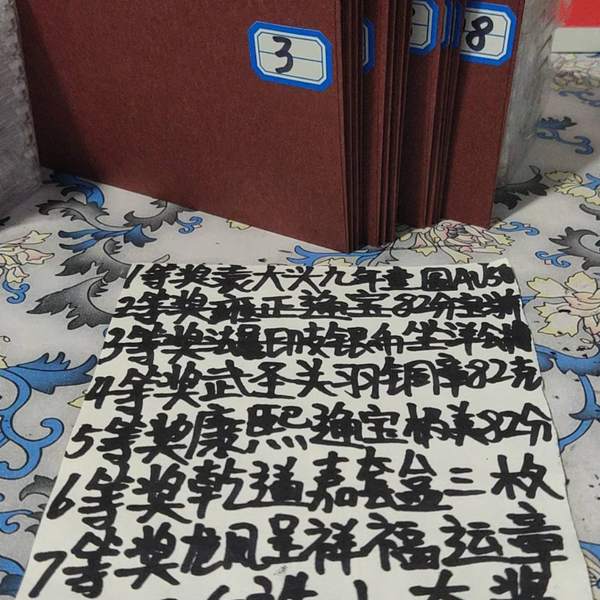 3
8
1等奖袁大头九年壹圆AU58
2等奖雍正通宝82分宝浙
3等奖法属印支银币坐洋公博
4等奖武圣关羽铜章82克
5等奖康熙通宝极美82分
6等奖乾道嘉套盒三枚
7等奖龙凤呈祥福运章
大奖